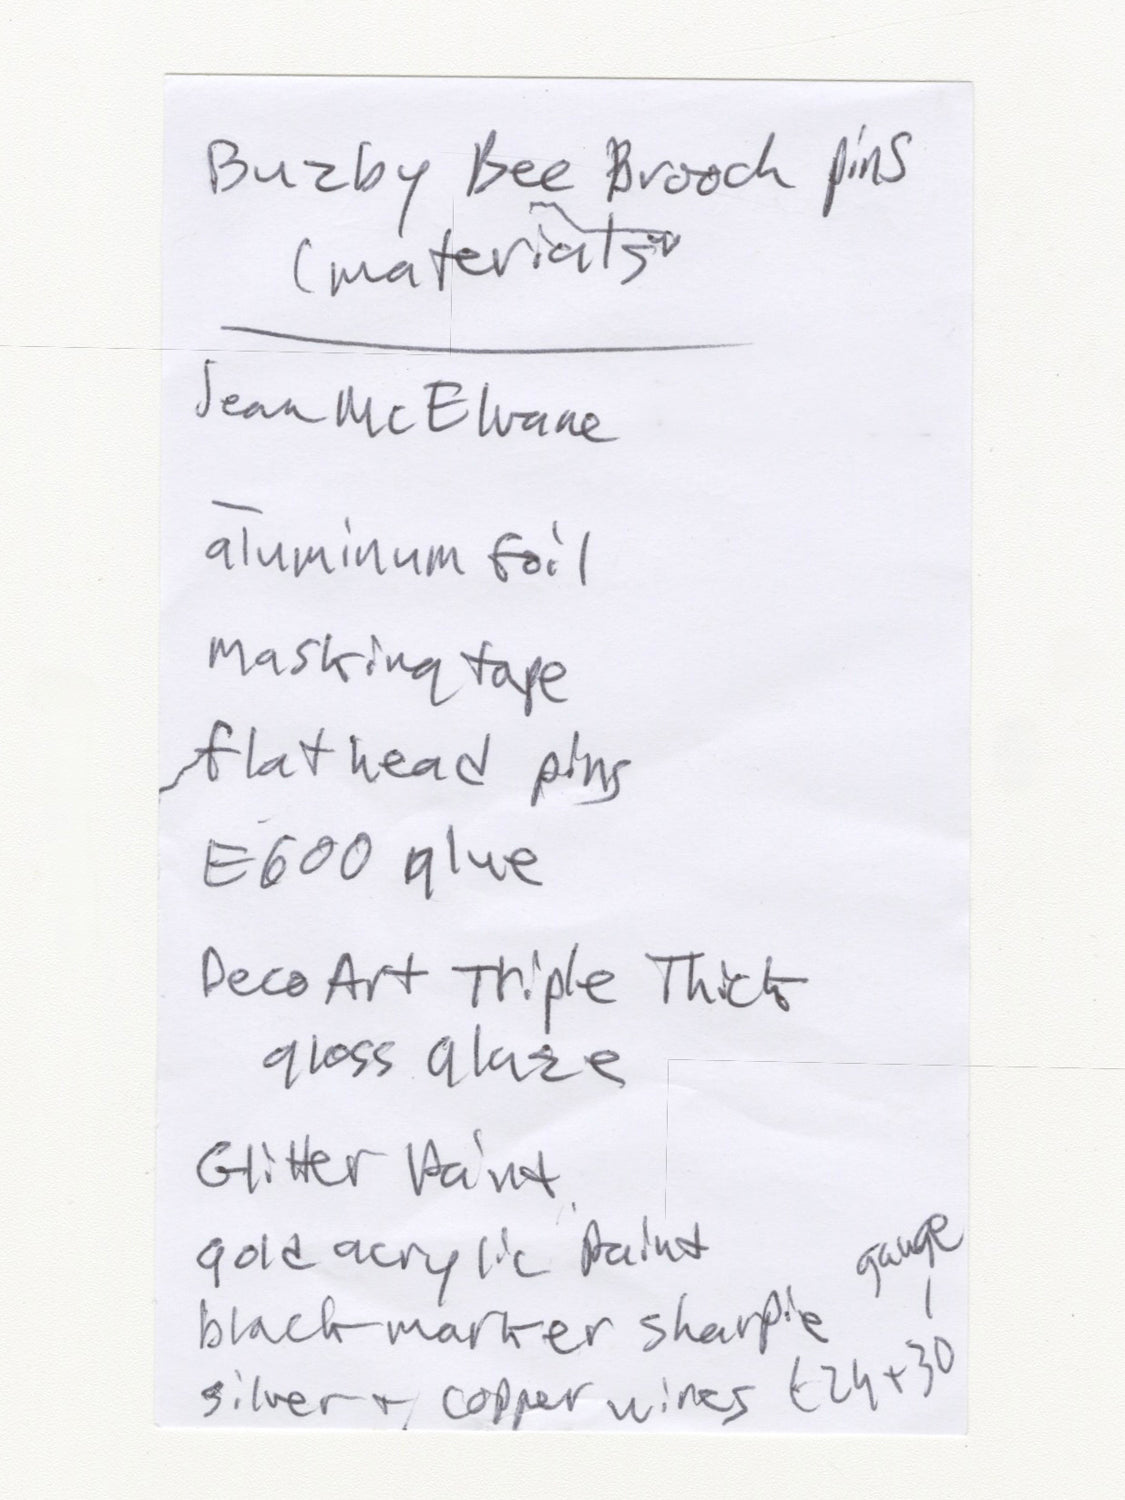 Buzby Bee Brooch pins
(materials
Jean McElvane
aluminum foil
masking tape
flathead pins
E600 glue
DecoArt Triple Thick
gloss glaze
Glitter Paint
gold acrylic paint
gauge
black marker sharpie
silver + copper wires (24 + 30